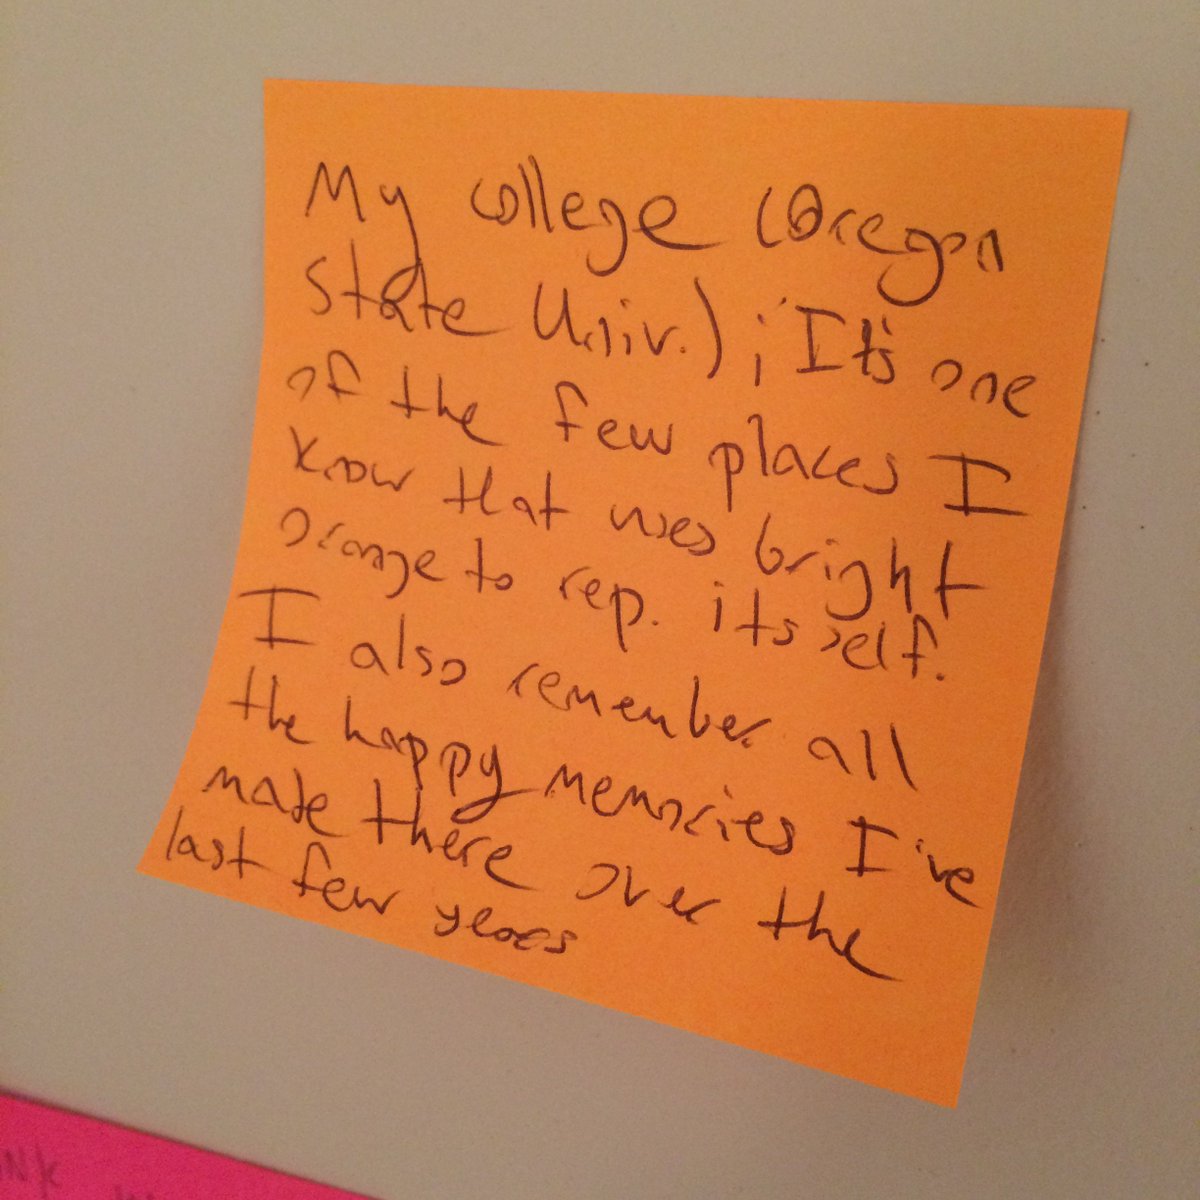 My college (Oregon
State Univ.); It's one
of the few places I
know that uses bright
orange to rep. itself.
I also remember all
the happy memories I've
made there over the
last few years